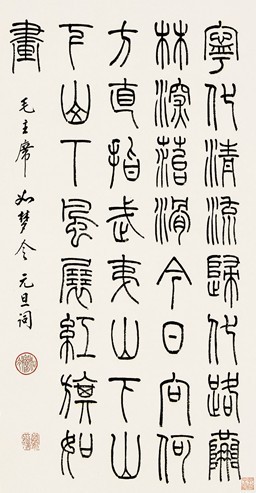 寧化清流歸化路隘
林深苔滑今日向何
方直指武夷山下山
下山下風展紅旗如
畫
毛主席如夢令元旦詞